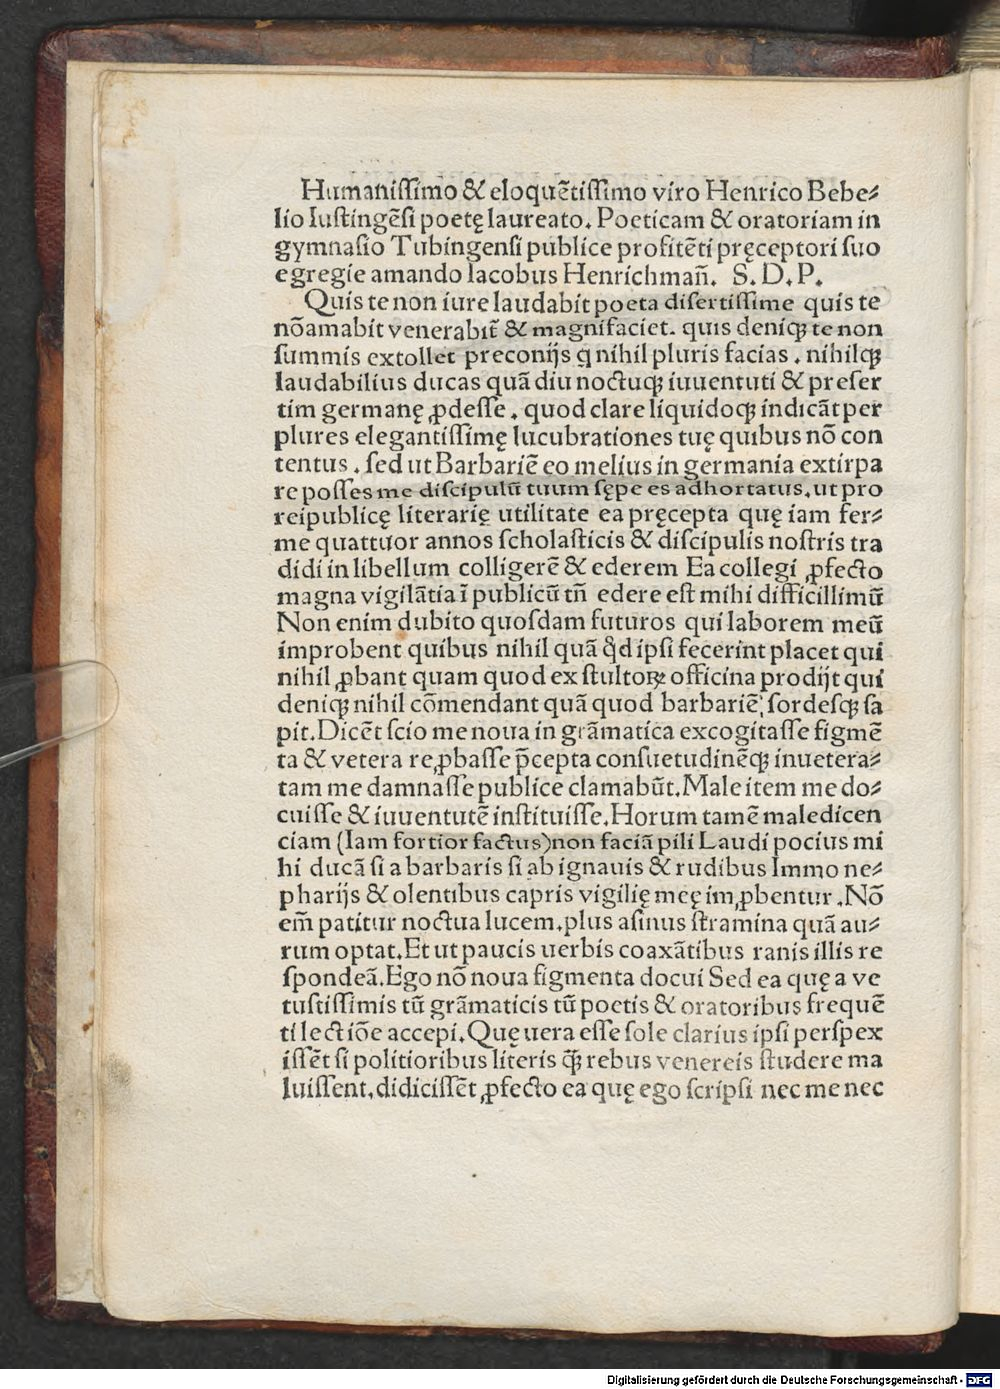 Humaniſſimo & eloquētiſſimo viro Henrico Bebe⸗
lio Iuſtingēſi poetę laureato. Poeticam & oratoriam in
gymnaſio Tubingenſi publice profitēti pręceptori ſuo
egregie amando Iacobus Henrichmañ. S. D. P.
Quis te non iure laudabit poeta diſertiſſime quis te
nō amabit venerabit̃ & magnifaciet. quis deniqꝫ te non
ſummis extollet preconijs q nihil pluris facias. nihilqꝫ
laudabilius ducas quā diu noctuqꝫ iuuentuti & preſer
tim germanę ꝓdeſſe. quod clare liquidoqꝫ indicāt per
plures elegantiſſimę lucubrationes tuę quibus nō con
tentus. ſed ut Barbariē eo melius in germania extirpa
re poſſes me diſcipulū tuum ſępe es adhortatus. ut pro
reipublicę literarię utilitate ea pręcepta quę iam fer⸗
me quattuor annos ſcholaſticis & diſcipulis noſtris tra
didi in libellum colligerē & ederem Ea collegi ꝓfecto
magna vigilātia ī publicū tñ edere eſt mihi difficillimū
Non enim dubito quoſdam futuros qui laborem meū
improbent quibus nihil quā qd̓ ipſi fecerint placet qui
nihil ꝓbant quam quod ex ſtultoꝝ officina prodijt qui
deniqꝫ nihil cōmendant quā quod barbariē; ſordeſqꝫ ſa
pit. Dicēt ſcio me noua in grāmatica excogitaſſe figmē
ta & vetera reꝓbaſſe p̄cepta conſuetudinēqꝫ inuetera⸗
tam me damnaſſe publice clamabūt. Male item me do⸗
cuiſſe & iuuentutē inſtituiſſe. Horum tamē maledicen
ciam (Iam fortior factus) non faciā pili Laudi pocius mi
hi ducā ſi a barbaris ſi ab ignauis & rudibus Immo ne⸗
pharijs & olentibus capris vigilię meę imꝓbentur. Nō
em̄ patitur noctua lucem. plus aſinus ſtramina quā au⸗
rum optat. Et ut paucis uerbis coaxātibus ranis illis re
ſpondeā. Ego nō noua figmenta docui Sed ea quę a ve
tuſtiſſimis tū grāmaticis tū poetis & oratoribus frequē
ti lectiōe accepi. Quę uera eſſe ſole clarius ipſi perſpex
iſſēt ſi politioribus literis q̄ꝫ rebus venereis ſtudere ma
luiſſent. didiciſſēt ꝓfecto ea quę ego ſcripſi nec me nec
Digitalisierung gefördert durch die Deutsche Forschungsgemeinschaft - DFG